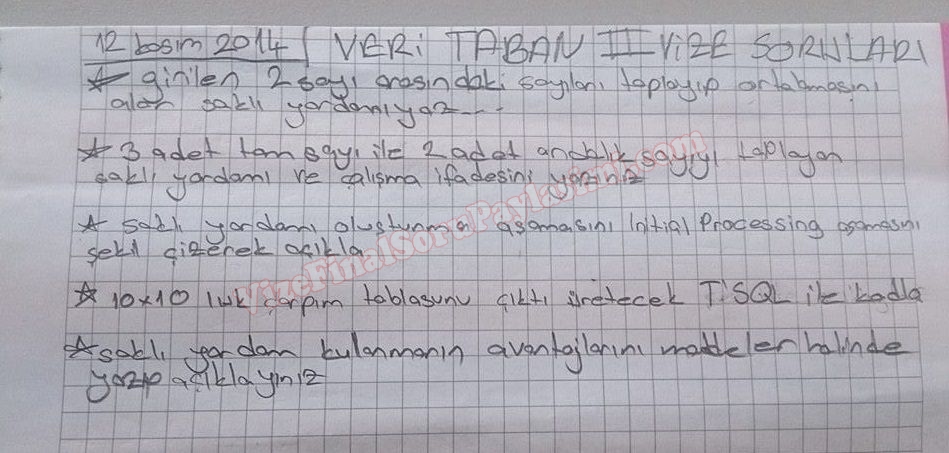 12 kasım 2014 | VERİ TABAN II VİZE SORULARI
* girilen 2 sayı arasındaki sayıları toplayıp ortalamasını
alan saklı yordamı yaz---
* 3 adet tam sayı ile 2 adet ondalık sayıyı toplayan
saklı yordamı ve çalışma ifadesini yazınız
* saklı yordamı oluşturma aşamasını Initial Processing aşamasını
şekil çizerek açıkla
* 10x10 luk çarpım tablosunu çıktı üretecek T'SQL ile kodla
* saklı yordam kulanmanın avantajlarını maddeler halinde
yazıp açıklayınız
VizeFinalSoruPaylasiniz